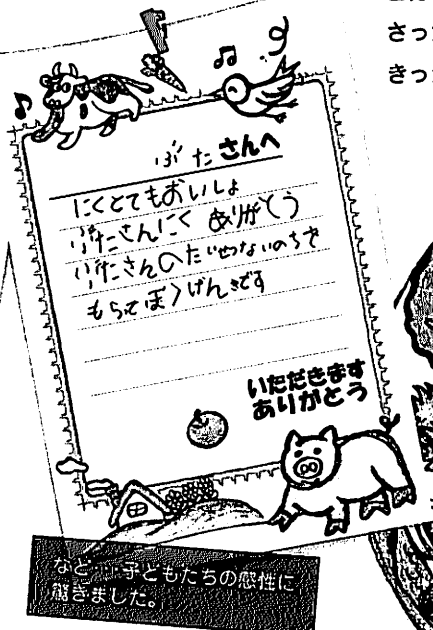 さっ
きっ
ぶたさんへ
にくとてもおいしよ
ぶたさんにくありがとう
ぶたさんのたいせつないのちを
もらってぼくげんきです
いただきます
ありがとう
など…子どもたちの感性に
驚きました。